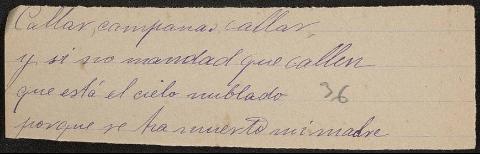 Callar, campanas, callar,
y si no mandad que callen
que está el cielo nublado 36
porque se ha muerto mi madre